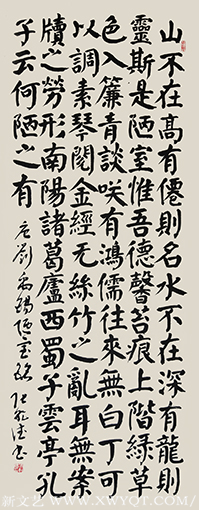 山不在高有僊則名水不在深有龍則
靈斯是陋室惟吾德馨苔痕上階綠草
色入簾青談咲有鴻儒往來無白丁可
以調素琴閱金經无絲竹之亂耳無案
牘之勞形南陽諸葛廬西蜀子雲亭孔
子云何陋之有
唐劉禹錫陋室銘 德書
新文艺 WWW.XWYQT.COM/